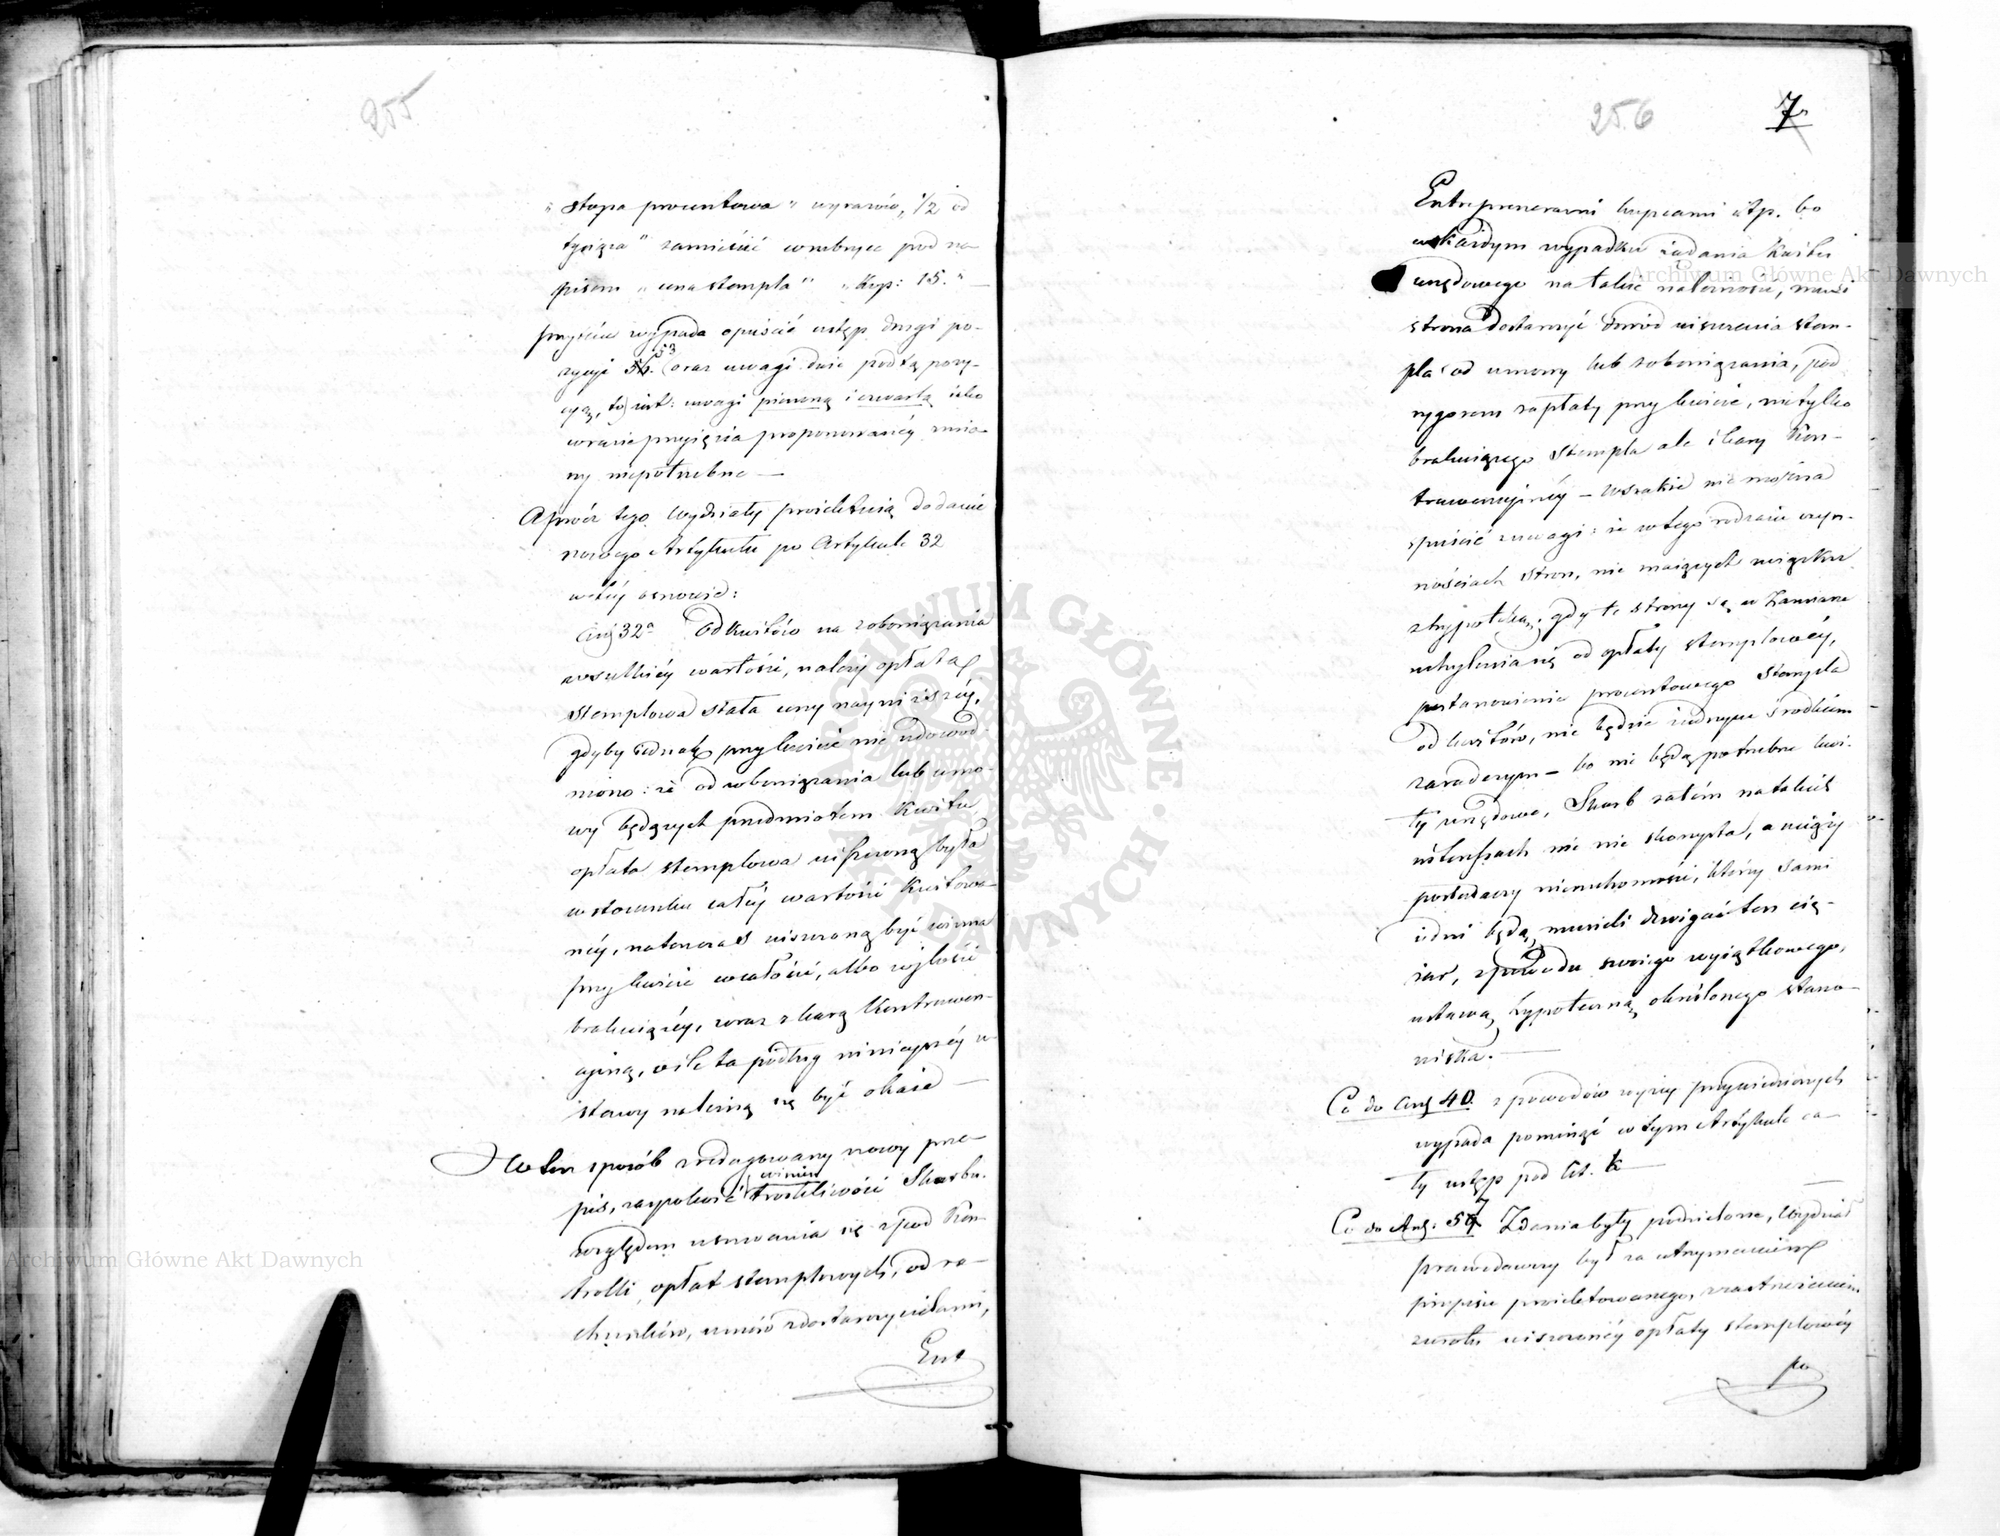 255
„stopa procentowa" wyrazów, 1/2 od
tysiąca" zamieścić w rubryce pod na-
pisem „cena stempla" „Kop: 15." —
przyczem wypada opuścić ustęp drugi po-
zycyi 53 oraz uwagi dwie pod tą pozy-
cyą, to jest: uwagi pierwszą i czwartą jako
w razie przyjęcia proponowanéy zmia-
ny niepotrzebne —
Oprócz tego Wydziały proiektuią dodanie
nowego Artykułu po Artykule 32
w téy osnowie:
Art 32a Od kwitów na zobowiązania
wszelkiéy wartości, należy opłata
stemplowa stała ceny nayniższéy,
gdyby iednak przy kwicie nie udowod-
niono: że od zobowiązania lub umo-
wy będących przedmiotem Kwitu
opłata stemplowa uiszczoną była
w stosunku całéy wartości Kwitowa-
néy, natenczas uiszczoną być winna
przy kwicie w całości, albo w ilości
brakuiącéy, wraz z karą Kontrawen-
cyjną, o ile ta podług ninieyszéy u-
stawy należną się być okaże —
W ten sposób zredagowany nowy prze-
pis, zaspokoić winien troskliwość Skarbu
względem usuwania się z pod Kon-
trolli opłat stemplowych, od ra-
chunków, umów z dostawcycielami,
Ent
256
7
Entreprenerami kupcami itp. bo
w każdym wypadku żądania Kwitu
urzędowego na takie należności, musi
strona dostarczyć dowód uiszczenia stem-
pla od umowy lub zobowiązania, pod
rygorem zapłaty przy kwicie, nietylko
brakuiącego stempla ale i kary Kon-
trawencyjnéy — wszakże nie można
spuścić z uwagi: że w tego rodzaiu czyn-
nościach stron, nie maiących związku
z hypoteką, gdy te strony są w zamiarze
uchylenia się od opłaty stemplowéy,
postanowienie procentowego stempla
od kwitów, nie będzie żadnym środkiem
zaradczym — bo nie będą potrzebne kwi-
ty urzędowe, Skarb zatém na takich
interesach nic nie skorzysta, a uciąży
posiadaczy nieruchomości, którzy sami
iedni będą musieli dźwigać ten cię-
żar, z powodu swoiego wyiątkowego,
ustawą hypoteczną określonego stano-
wiska. —
Co do Art 40. z powodów wyżéy przywiedzionych
wypada pominąć w tym Artykule ca-
ły ustęp pod lit. k —
Co do Art: 57 Zdania były podzielone, Wydział
prawodawczy był za utrzymaniem
przepisu proiektowanego, z zastrzeżeniem
zwrotu uiszczonéy opłaty stemplowéy
po
Archiwum Główne Akt Dawnych
Archiwum Główne Akt Dawnych
ARCHIWUM GŁÓWNE AKT DAWNYCH